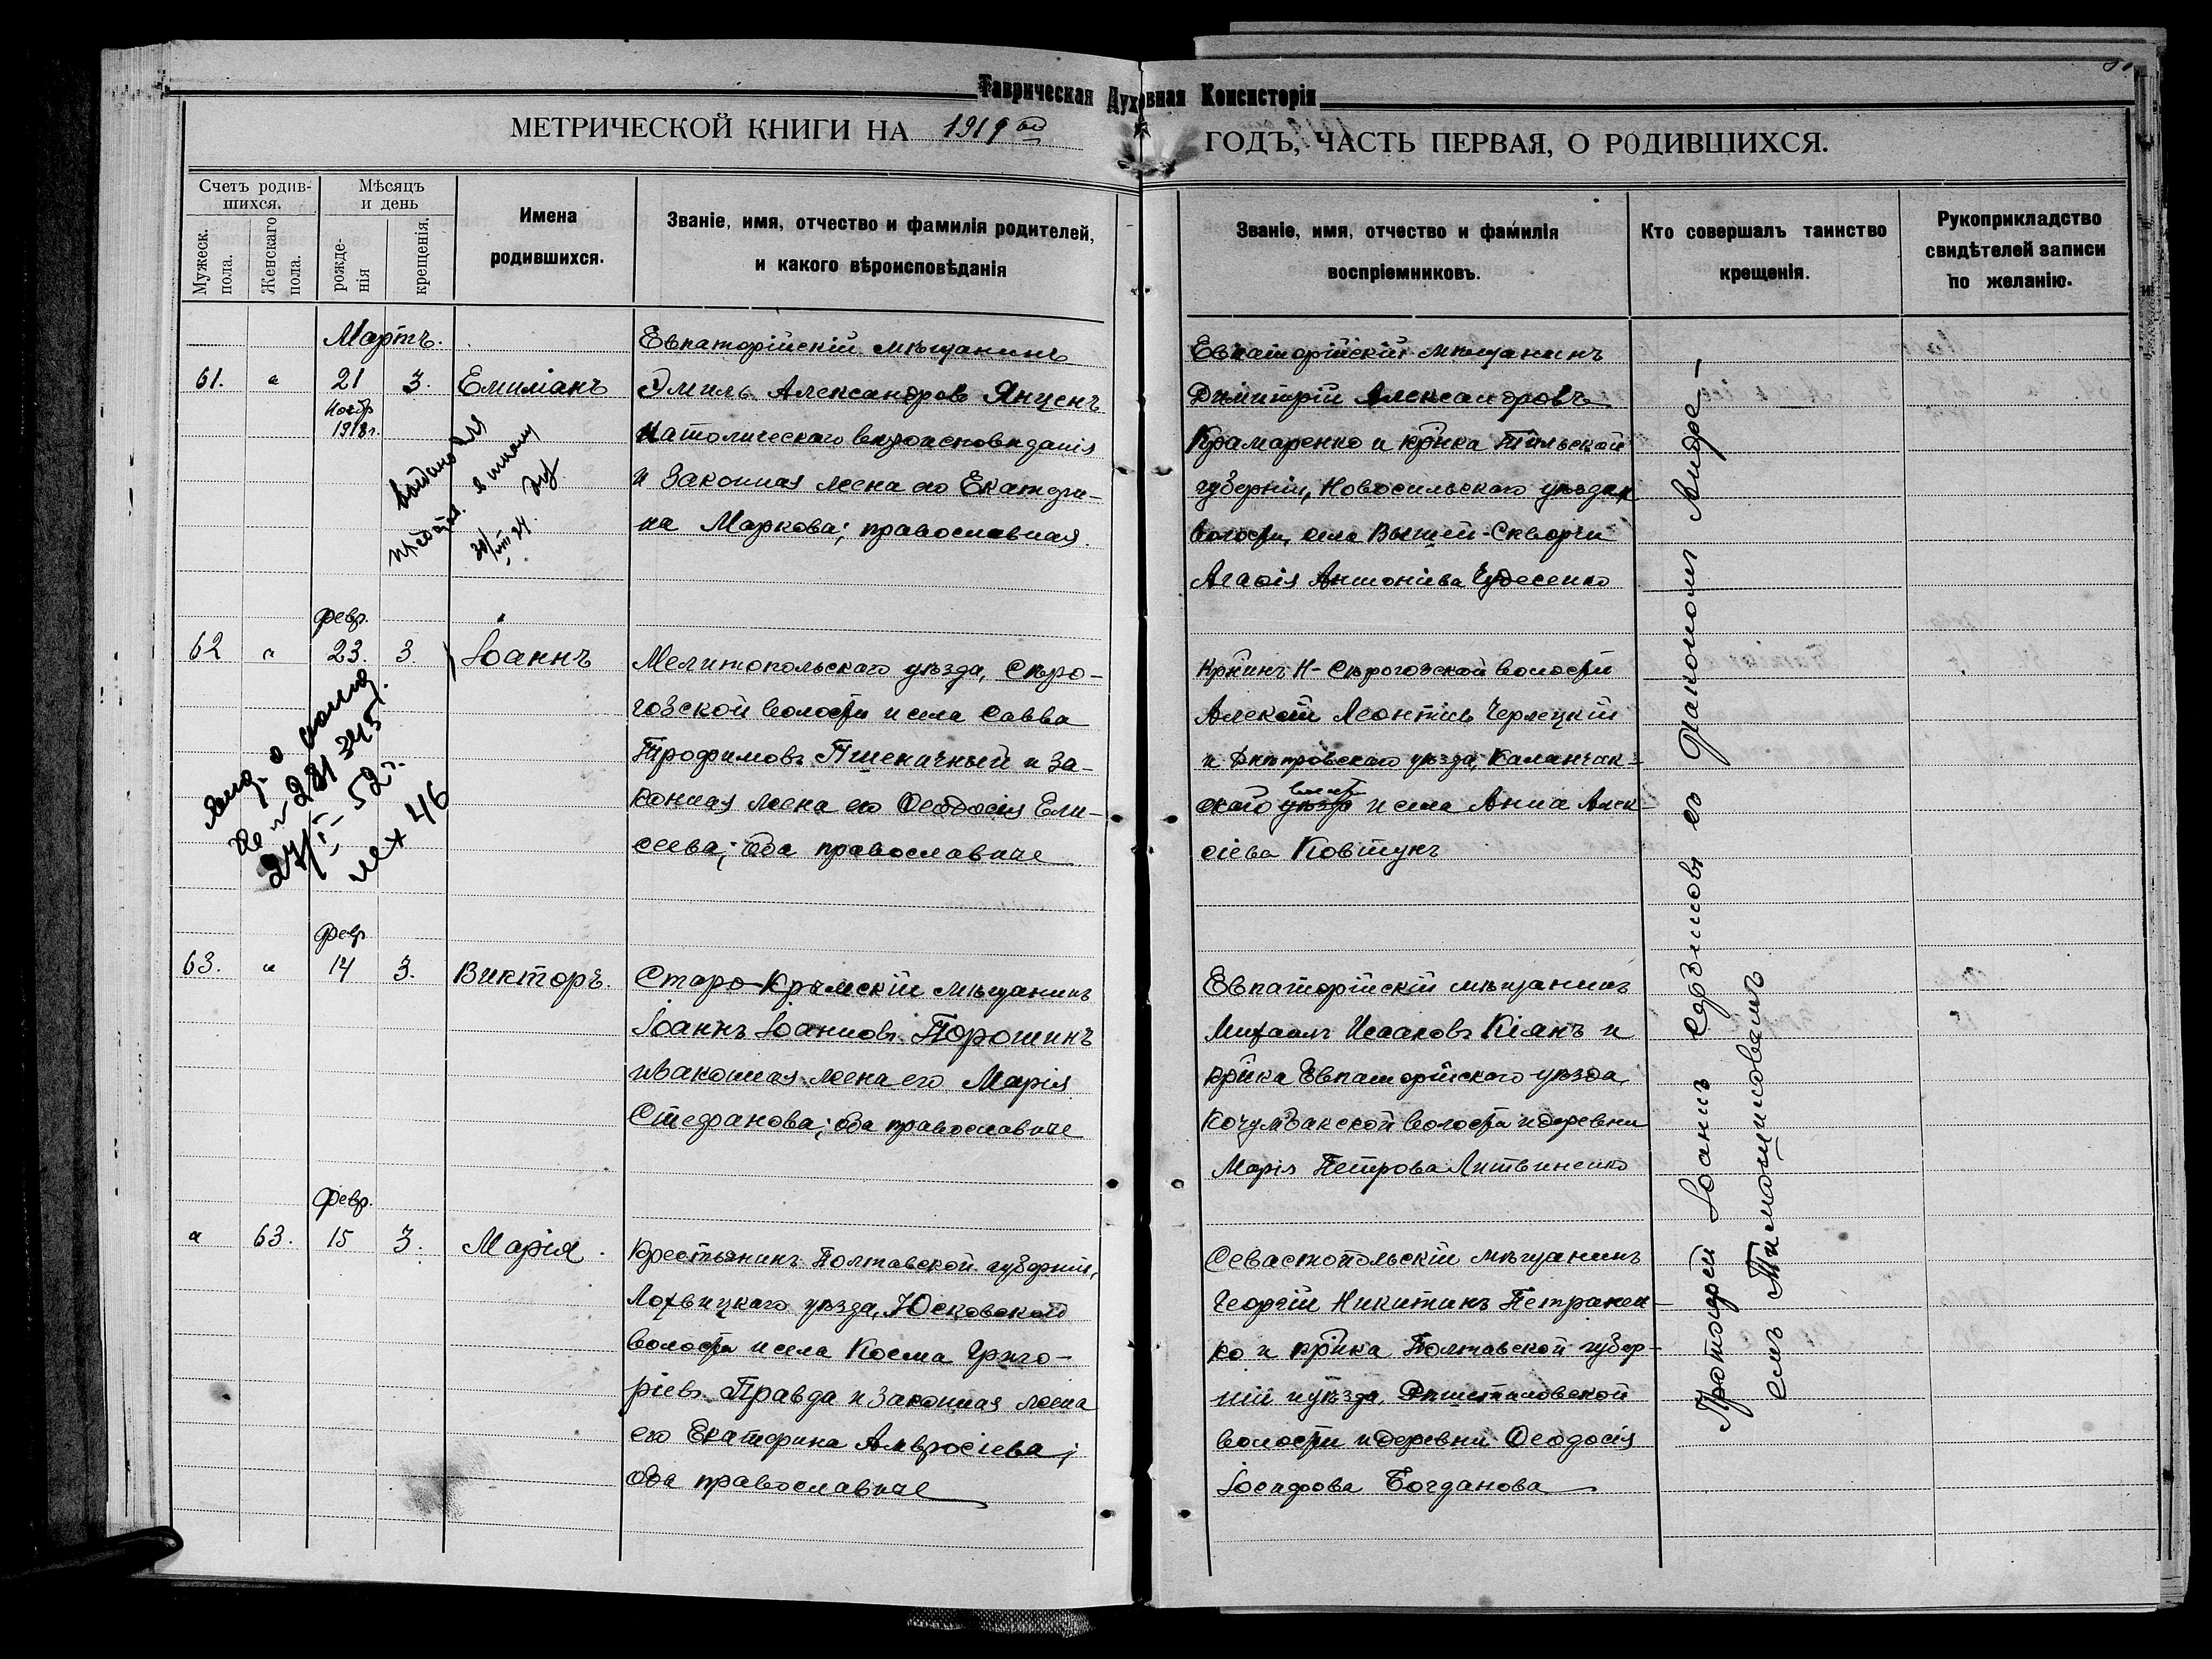 Таврическая Духовная Консисторія
МЕТРИЧЕСКОЙ КНИГИ НА 1919 ый ГОДЪ, ЧАСТЬ ПЕРВАЯ, О РОДИВШИХСЯ.
Счетъ родив-
шихся.
Мужеск. пола.
Женскаго пола.
Мѣсяцъ
и день
рожде-
нія
крещенія.
Имена
родившихся.
Званіе, имя, отчество и фамилія родителей,
и какого вѣроисповѣданія
Званіе, имя, отчество и фамилія
воспріемниковъ.
Кто совершалъ таинство
крещенія.
Рукоприкладство
свидѣтелей записи
по желанію.
Мартъ.
61. " 21 3. Емиліанъ
Ноябр
1918 г.
Евпаторійскій мѣщанинъ
Эмиль Александров Янценъ
католическаго вѣроисповѣданія
и законная жена его Екатери-
на Маркова; православная.
Евпаторійскій мѣщанинъ
Димитрій Александровъ
Крамаренко и кр̃нка Тульской
губерніи, Новосильскаго уѣзда,
волости, села Вышей-Скворчи
Агаѳія Антоніева Чудесенко
февр.
62 " 23. 3. Іоаннъ
281345
27/I-52 г.
Мелитопольскаго уѣзда, Сѣро-
гозской волости и села Савва
Трофимовъ Пшеничный и за-
конная жена его Ѳеодосія Ели-
сеева; оба православные
кр̃нинъ Н-Сѣрогозской волости
Алексѣй Леонтіевъ Черлецкій
и Днѣпровскаго уѣзда, Каланчак-
скаго уѣзда волости и села Анна Алек-
сіева Ковтунъ
февр
63. " 14 3. Викторъ.
Старо-Крымскій мѣщанинъ
Іоаннъ Іоанновъ Порошинъ
и законная жена его Марія
Стефанова; оба православные
Евпаторійскій мѣщанинъ
Михаилъ Исааковъ Кіянъ и
кр̃нка Евпаторійскаго уѣзда,
волости и деревни
Марія Петрова Литвиненко
февр.
" 63. 15 3. Марія.
Крестьянинъ Полтавской губерніи,
Лохвицкаго уѣзда, Юсковской
волости и села Косма Григо-
ріевъ Правда и законная жена
его Екатерина Амвросіева;
оба православные
Севастопольскій мѣщанинъ
Георгій Никитинъ Петранен-
ко и кр̃нка Полтавской губер-
ніи и уѣзда,
волости и деревни Ѳеодосія
Іосифова Богданова
Протоіерей Іоаннъ Сербиновъ съ діакономъ Андре-
емъ